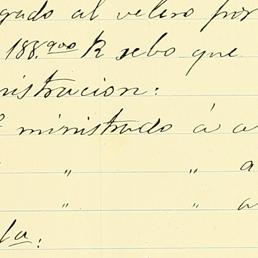 gado al velero por
188.900 K sebo que
nistracion:
ministrado á a
" " a
" " a
la: